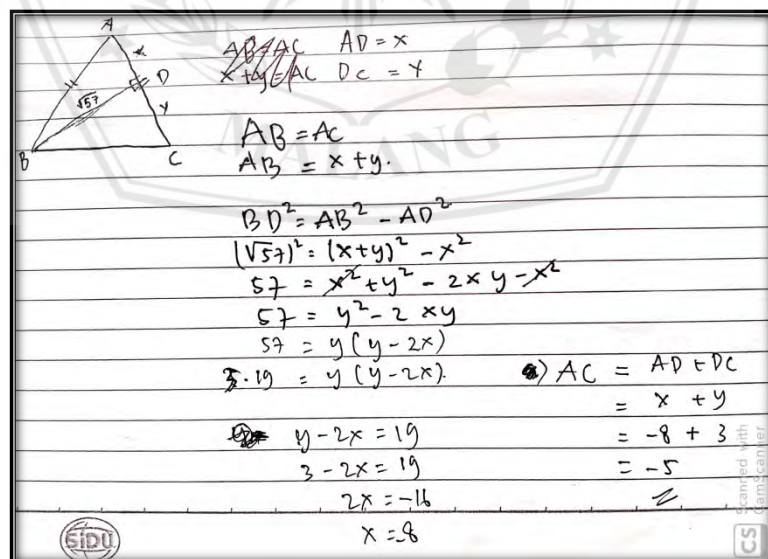 A
x
D
√57
y
B
C
AB=AC AD = x
x+y=AC DC = Y
AB = AC
AB = x + y.
MALANG
BD² = AB² - AD²
(√57)² = (x+y)² - x²
57 = x² + y² - 2xy - x²
57 = y² - 2xy
57 = y (y - 2x)
3·19 = y (y - 2x).
y - 2x = 19
3 - 2x = 19
2x = -16
x = -8
) AC = AD + DC
= x + y
= -8 + 3
= -5
SiDU
CS Scanned with CamScanner